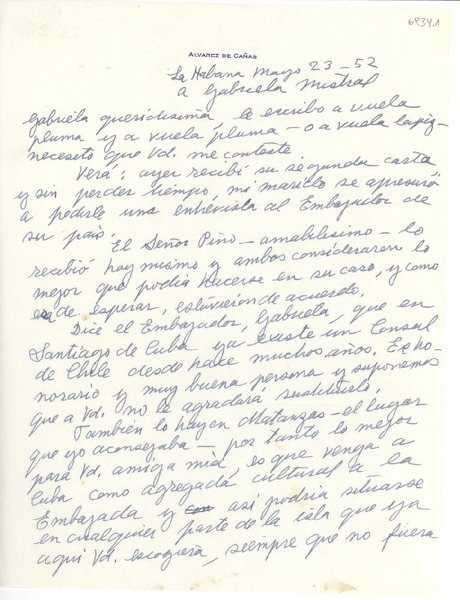 6934.1
ALVAREZ DE CAÑAS
La Habana Mayo 23-52
a Gabriela Mistral
Gabriela queridísima, le escribo a vuela
pluma y a vuela pluma — o a vuela lapiz —
necesito que Vd. me conteste.
Verá: ayer recibí su segunda carta
y sin perder tiempo, mi marido se apresuró
a pedirle una entrevista al Embajador de
su país.
El Señor Pino — amabilísimo — lo
recibió hoy mismo y ambos consideraron lo
mejor que podía hacerse en su caso, y como
es de esperar, estuvieron de acuerdo.
Dice el Embajador, Gabriela, que en
Santiago de Cuba ya existe un Consul
de Chile desde hace muchos años. Es ho-
norario y muy buena persona y suponemos
que a Vd. no le agradará sustituirlo.
También lo hay en Matanzas — el lugar
que yo aconsejaba — por tanto lo mejor
para Vd. amiga mía, es que venga a
Cuba como agregada cultural a la
Embajada y así podría situarse
en cualquier parte de la isla que ya
aquí Vd. escogiera, siempre que no fuera